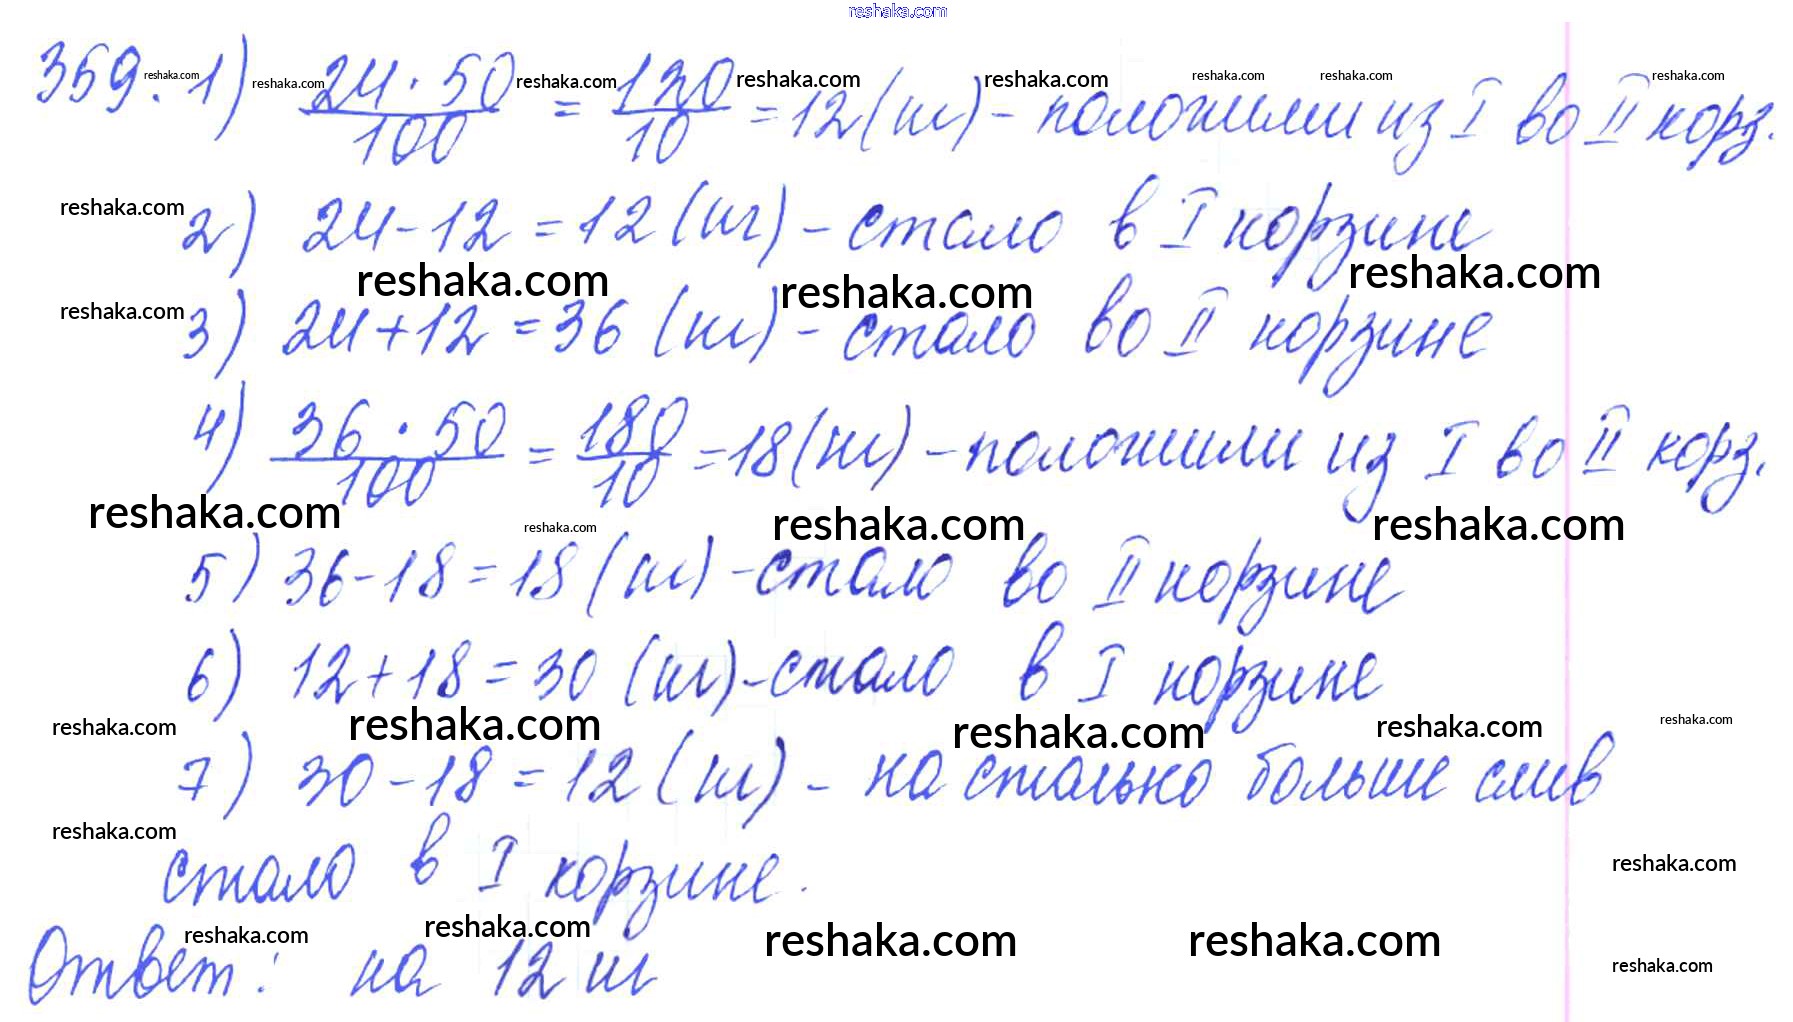 reshaka.com
359. 1) 24·50/100 = 120/10 = 12 (кг) – положили из I во II корз.
reshaka.com reshaka.com reshaka.com reshaka.com reshaka.com reshaka.com reshaka.com reshaka.com
2) 24 – 12 = 12 (кг) – стало в I корзине
reshaka.com
reshaka.com reshaka.com reshaka.com
3) 24 + 12 = 36 (кг) – стало во II корзине
reshaka.com
4) 36·50/100 = 180/10 = 18 (кг) – положили из I во II корз.
reshaka.com reshaka.com reshaka.com reshaka.com
5) 36 – 18 = 18 (кг) – стало во II корзине
6) 12 + 18 = 30 (кг) – стало в I корзине
reshaka.com reshaka.com reshaka.com reshaka.com reshaka.com
7) 30 – 18 = 12 (кг) – на столько больше слив
reshaka.com
стало в I корзине.
reshaka.com
reshaka.com reshaka.com reshaka.com reshaka.com
Ответ: на 12 кг
reshaka.com